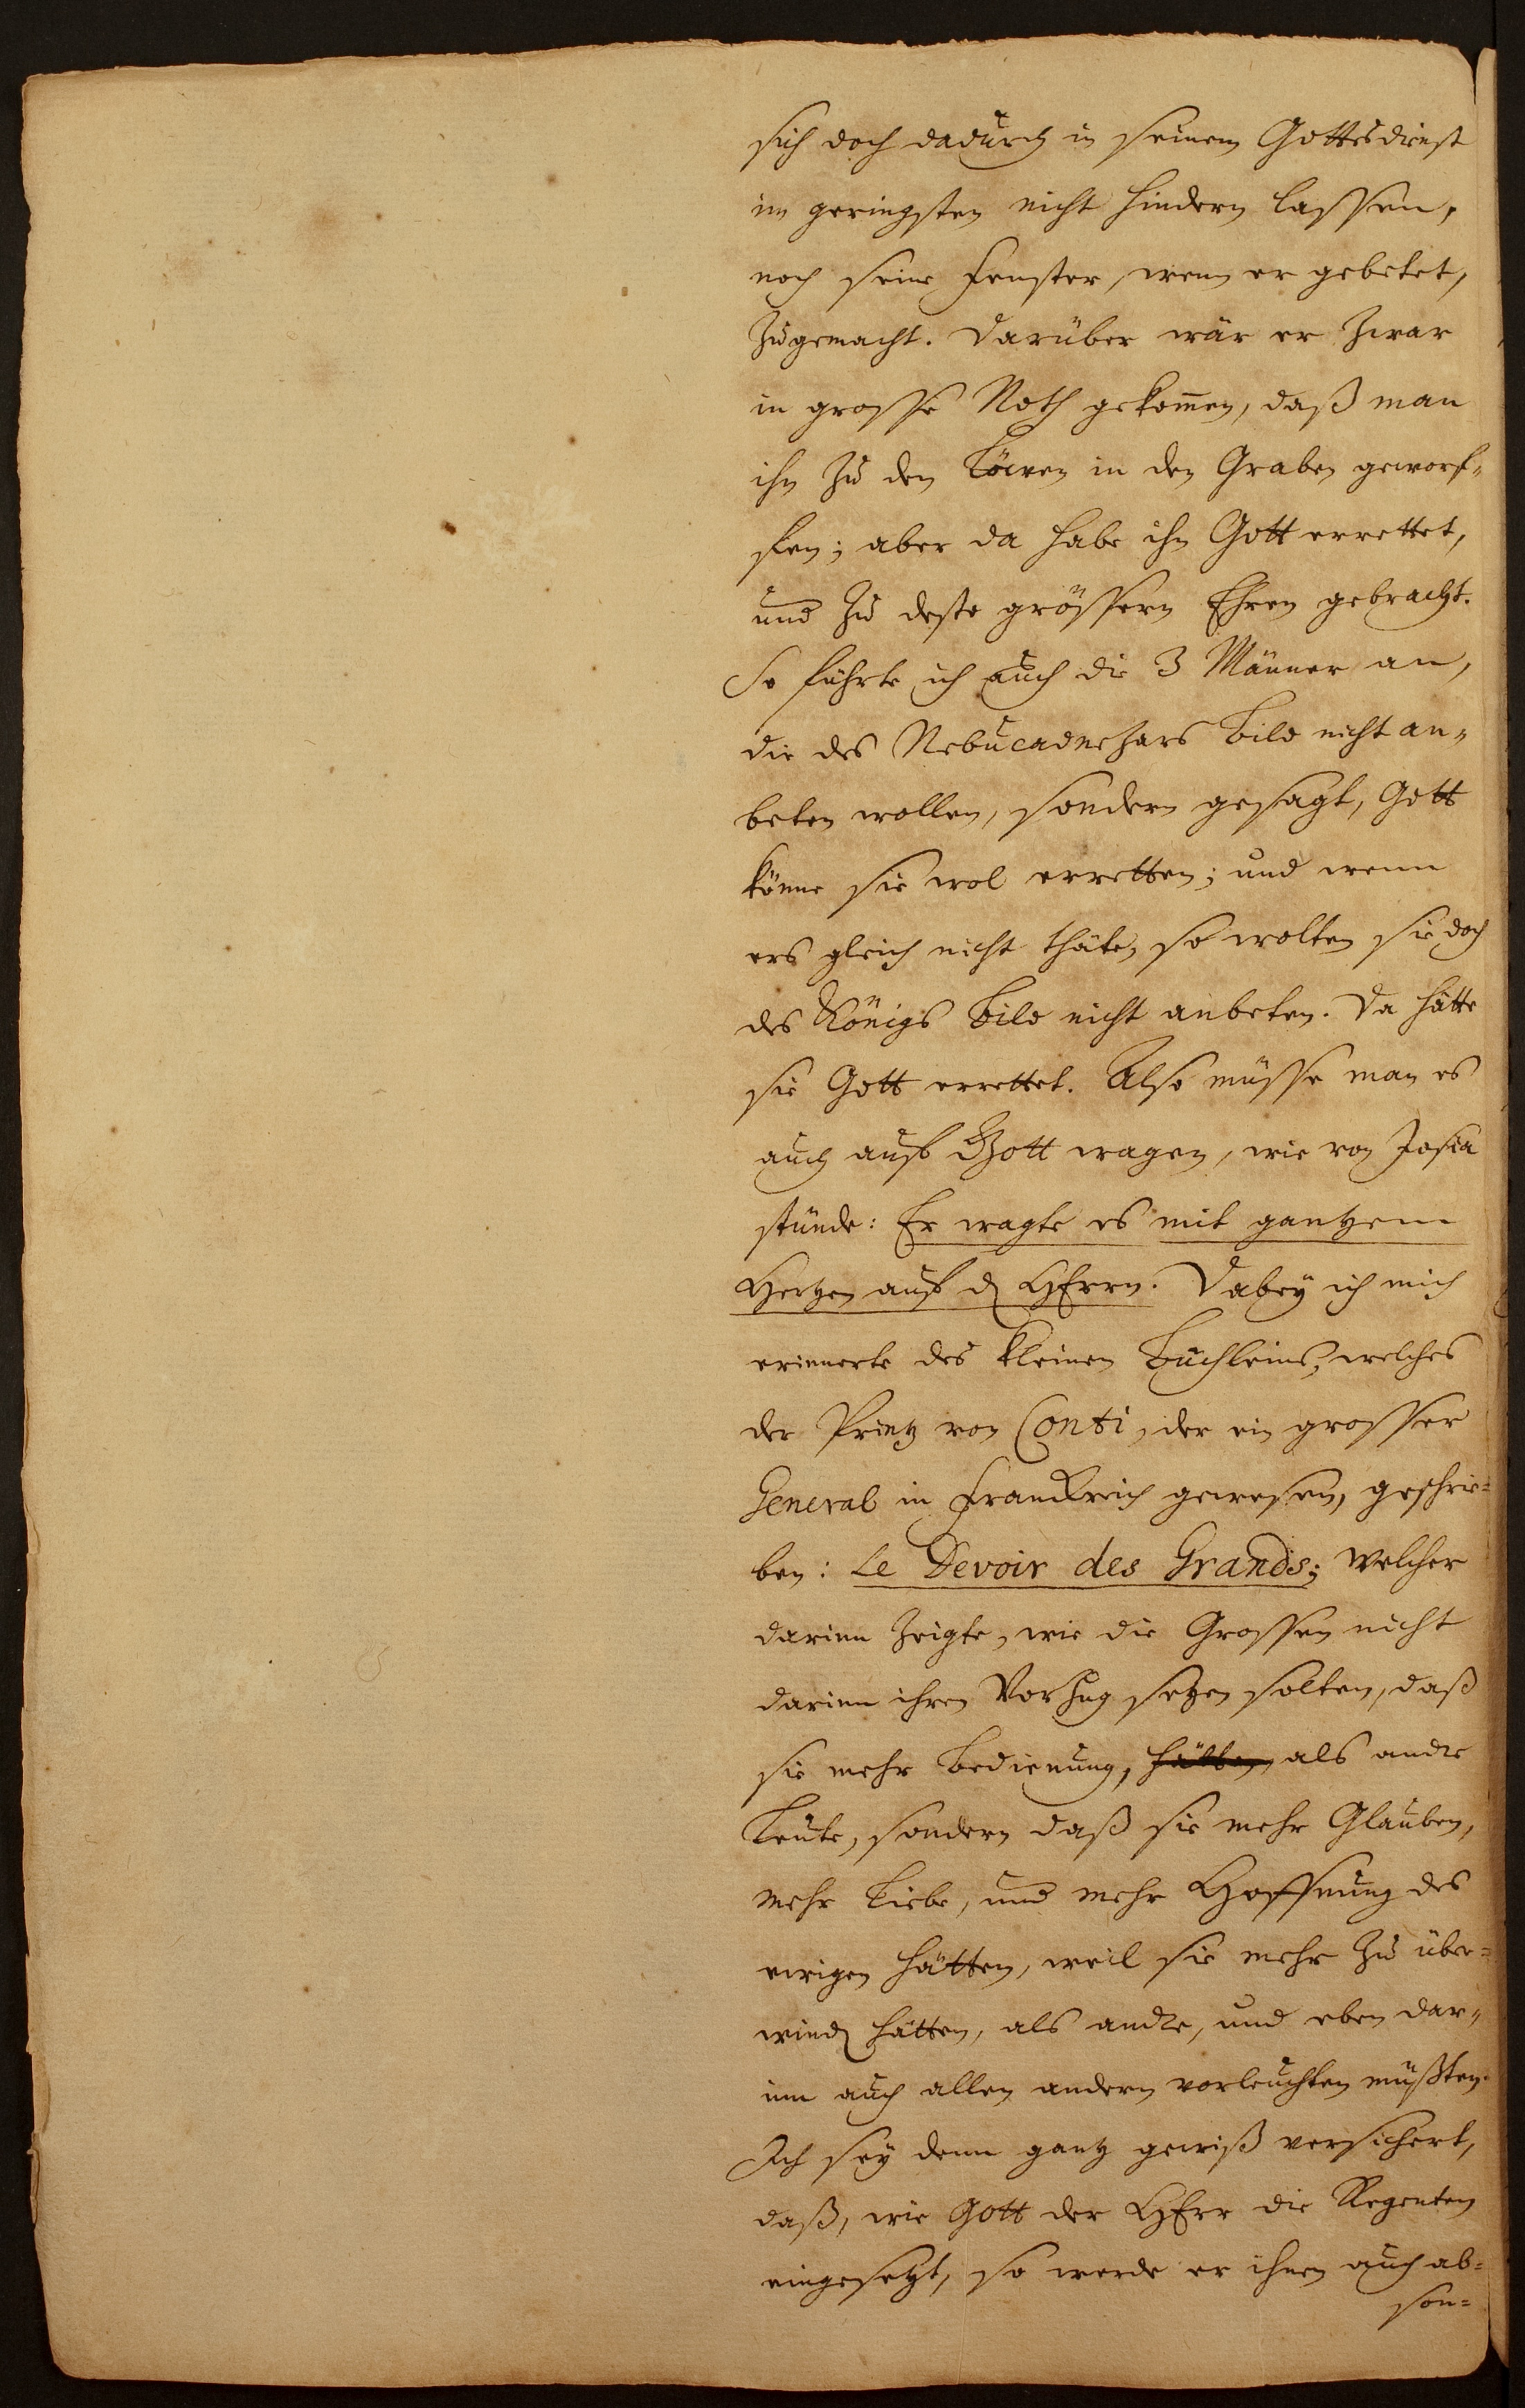 sich doch dadurch in seinem Gottesdienst
im geringsten nicht hindern lassen,
noch seine Fenster, wenn er gebetet,
zugemacht. Darüber wär er zwar
in grosse Noth gekom̄en, daß man
ihn zu den Löwen in den Graben geworf-
fen; aber da habe ihn Gott errettet,
und zu desto grössern Ehren gebracht.
So führte ich auch die 3 Männer an,
die des Nebucadnezars Bild nicht an-
beten wollen, sondern gesagt, Gott
könne sie wol erretten; und wenn
ers gleich nicht thäte, so wolten sie doch
des Königs Bild nicht anbeten. Da hätte
sie Gott errettet. Also müsse man es
auch auf Gott wagen, wie von Josia
stünde: Er wagte es mit gantzem
Hertzen auf d. HErrn. Dabey ich mich
erinnerte des kleinen Büchleins, welches
der Printz von Conti, der ein grosser
General in Franckreich gewesen, geschrie-
ben: Le Devoir des Grands; welcher
darinn zeigte, wie die Grossen nicht
darinn ihren Vorzug setzen solten, daß
sie mehr Bedienung, hätten, als andre
Leute, sondern daß sie mehr Glauben,
mehr Liebe, und mehr Hoffnung des
ewigen hätten, weil sie mehr zu über-
wind. hätten, als andre, und eben dar-
inn auch allen andern vorleuchten müßten.
Ich sey denn gantz gewiß versichert,
daß, wie Gott der HErr die Regenten
eingesetzt, so werde er ihnen auch ab-
son-